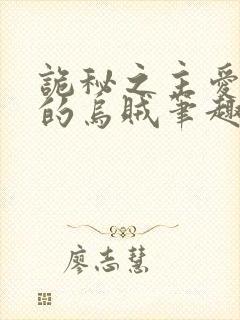 詭秘之主愛
的烏賊筆趣
廖志慧